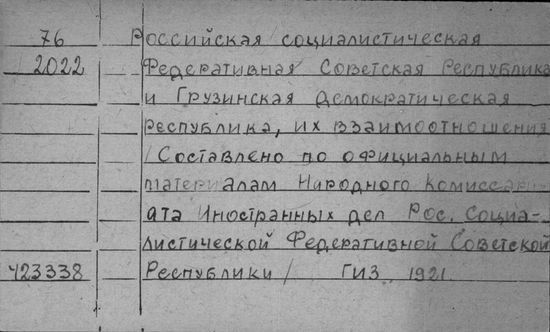 76 Российская социалистическая
2022 Федеративная Советская Республика
и Грузинская демократическая
республика, их взаимоотношения
/Составлено по официальным
материалам Народного Комиссари-
ата Иностранных дел Рос. Социа-
листической Федеративной Советской
423338 Республики/ ГИЗ 1921